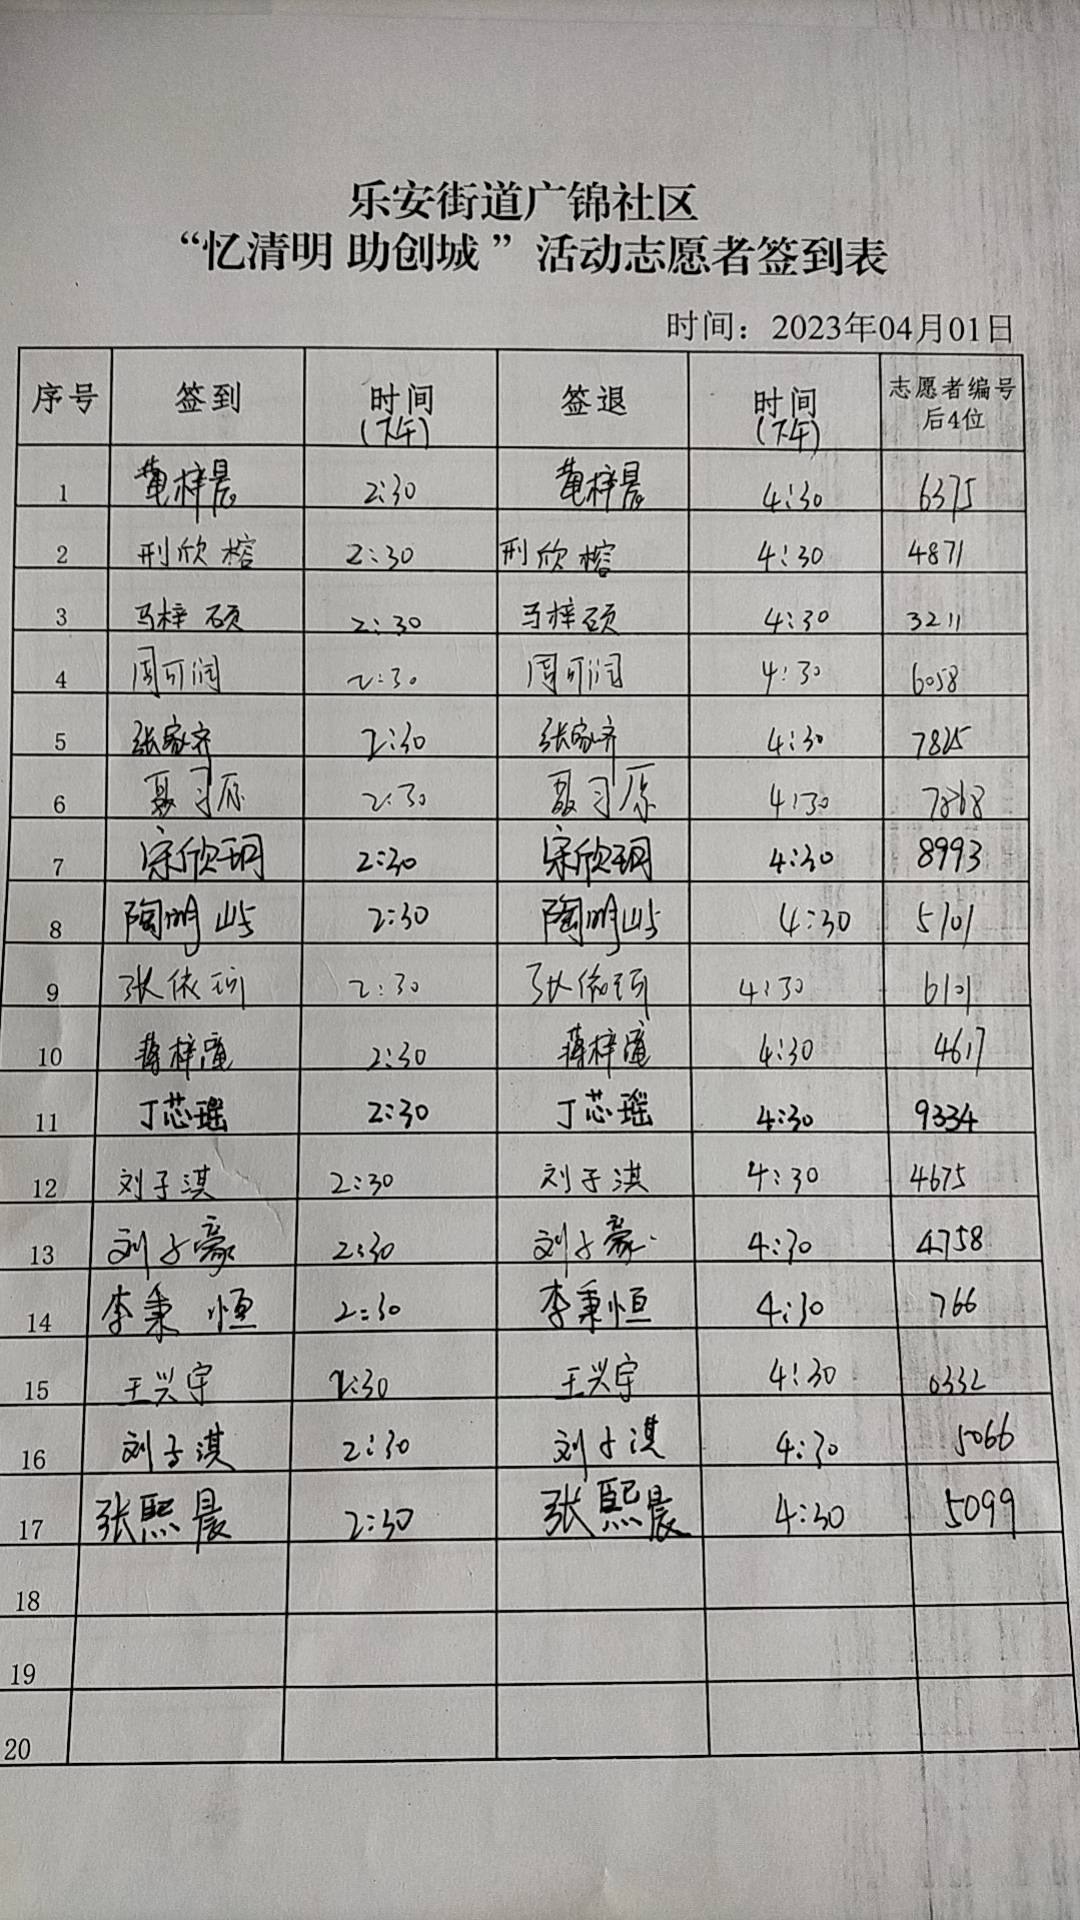 乐安街道广锦社区
“忆清明 助创城 ”活动志愿者签到表
时间：2023年04月01日
序号 签到 时间(下午) 签退 时间(下午) 志愿者编号后4位
1 梓晨 2:30 梓晨 4:30 6375
2 刑欣榕 2:30 刑欣榕 4:30 4871
3 马梓硕 2:30 马梓硕 4:30 3211
4 周可润 2:30 周可润 4:30 6058
5 张家齐 2:30 张家齐 4:30 7825
6 聂习原 2:30 聂习原 4:30 7868
7 宋欣玥 2:30 宋欣玥 4:30 8993
8 陶明屿 2:30 陶明屿 4:30 5101
9 张依珂 2:30 张依珂 4:30 6101
10 蒋梓 2:30 蒋梓 4:30 4617
11 丁芯瑶 2:30 丁芯瑶 4:30 9334
12 刘子淇 2:30 刘子淇 4:30 4675
13 刘子豪 2:30 刘子豪 4:30 4758
14 李秉恒 2:30 李秉恒 4:30 766
15 王兴宇 2:30 王兴宇 4:30 0332
16 刘子淇 2:30 刘子淇 4:30 5066
17 张熙晨 2:30 张熙晨 4:30 5099
18
19
20